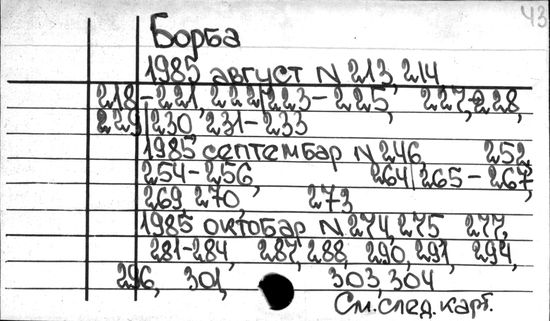 43
Борба
1985 август N 213, 214
218-221, 222/223-225, 227, 228,
229/230, 231-233
1985 септембар N 246, 252,
254-256, 264/265-267,
269 270, 273
1985 октобар N 274, 275 277,
281-284, 287, 288, 290, 291, 294,
296, 301, 303, 304
См. след. карт.